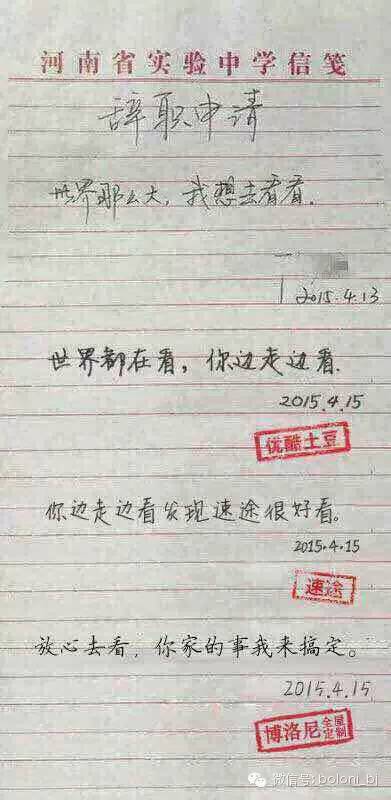 河南省实验中学信笺
辞职申请
世界那么大，我想去看看.
2015.4.13
世界都在看，你边走边看.
2015.4.15
优酷土豆
你边走边看发现速途很好看。
2015.4.15
速途
放心去看，你家的事我来搞定。
2015.4.15
博洛尼 全屋定制
微信号: boloni_bj